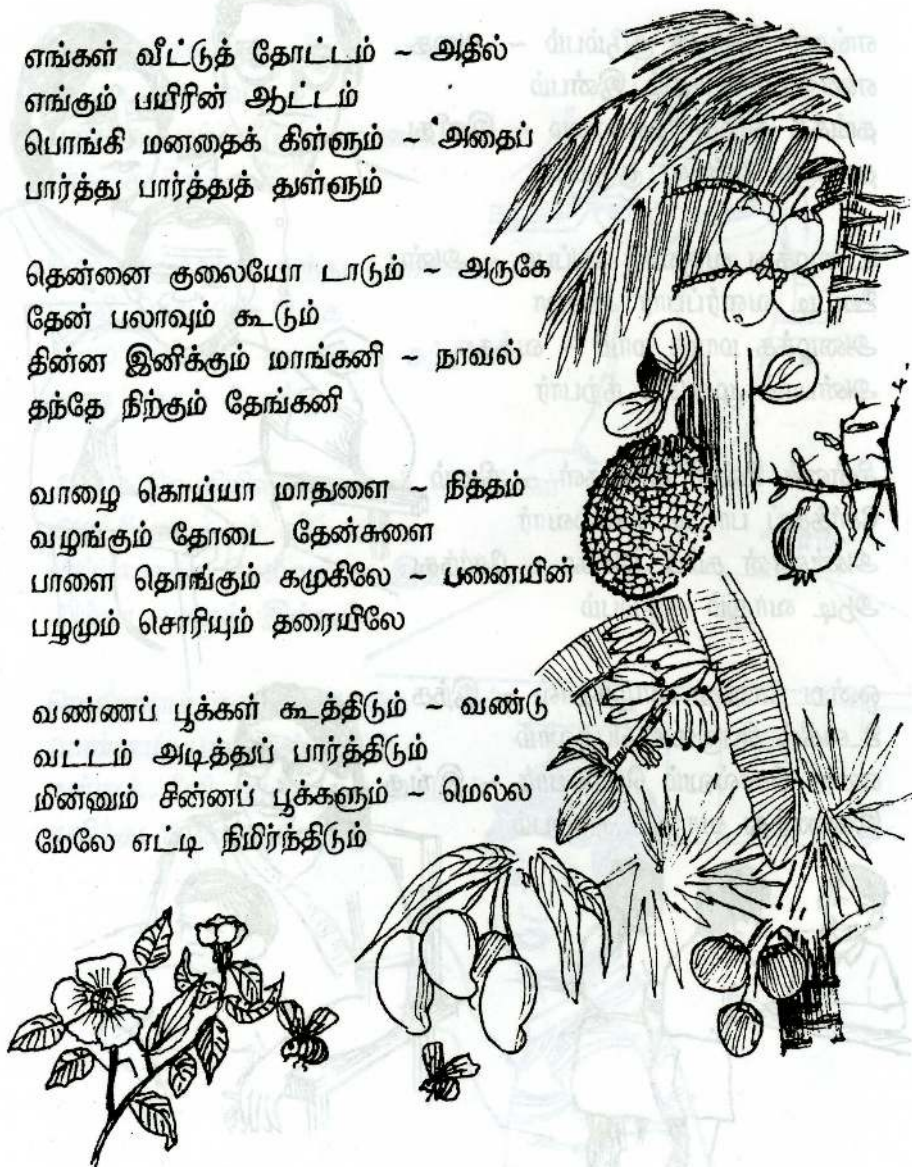 எங்கள் வீட்டுத் தோட்டம் ~ அதில்
எங்கும் பயிரின் ஆட்டம்
பொங்கி மனதைக் கிள்ளும் ~ அதைப்
பார்த்து பார்த்துத் துள்ளும்
தென்னை குலையோ டாடும் ~ அருகே
தேன் பலாவும் கூடும்
தின்ன இனிக்கும் மாங்கனி ~ நாவல்
தந்தே நிற்கும் தேங்கனி
வாழை கொய்யா மாதுளை ~ நித்தம்
வழங்கும் தோடை தேன்சுளை
பாளை தொங்கும் கமுகிலே ~ பனையின்
பழமும் சொரியும் தரையிலே
வண்ணப் பூக்கள் கூத்திடும் ~ வண்டு
வட்டம் அடித்துப் பார்த்திடும்
மின்னும் சின்னப் பூக்களும் ~ மெல்ல
மேலே எட்டி நிமிர்ந்திடும்